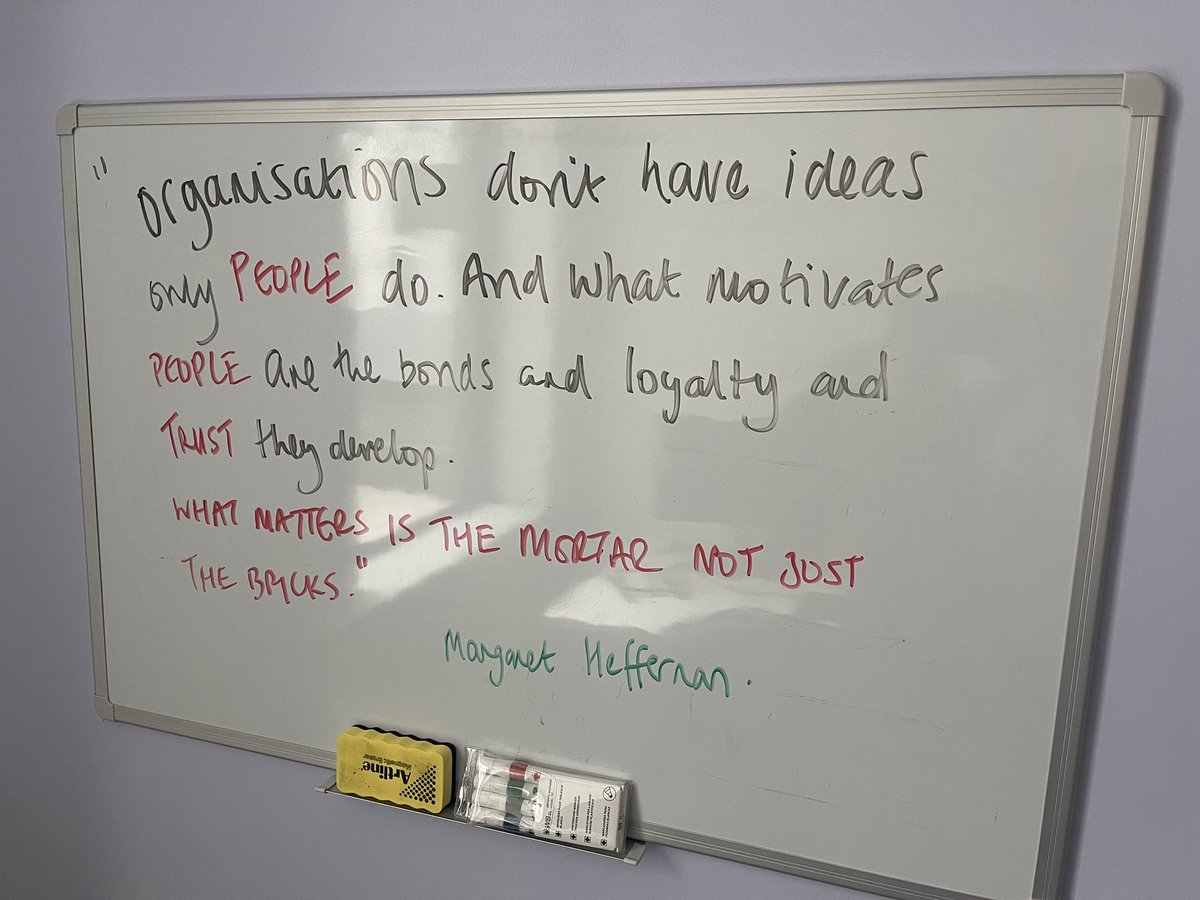 "organisations don't have ideas
only PEOPLE do. And what motivates
PEOPLE are the bonds and loyalty and
TRUST they develop.
WHAT MATTERS IS THE MORTAR NOT JUST
THE BRICKS."
Margaret Heffernan.
Artline
Magnetic Eraser